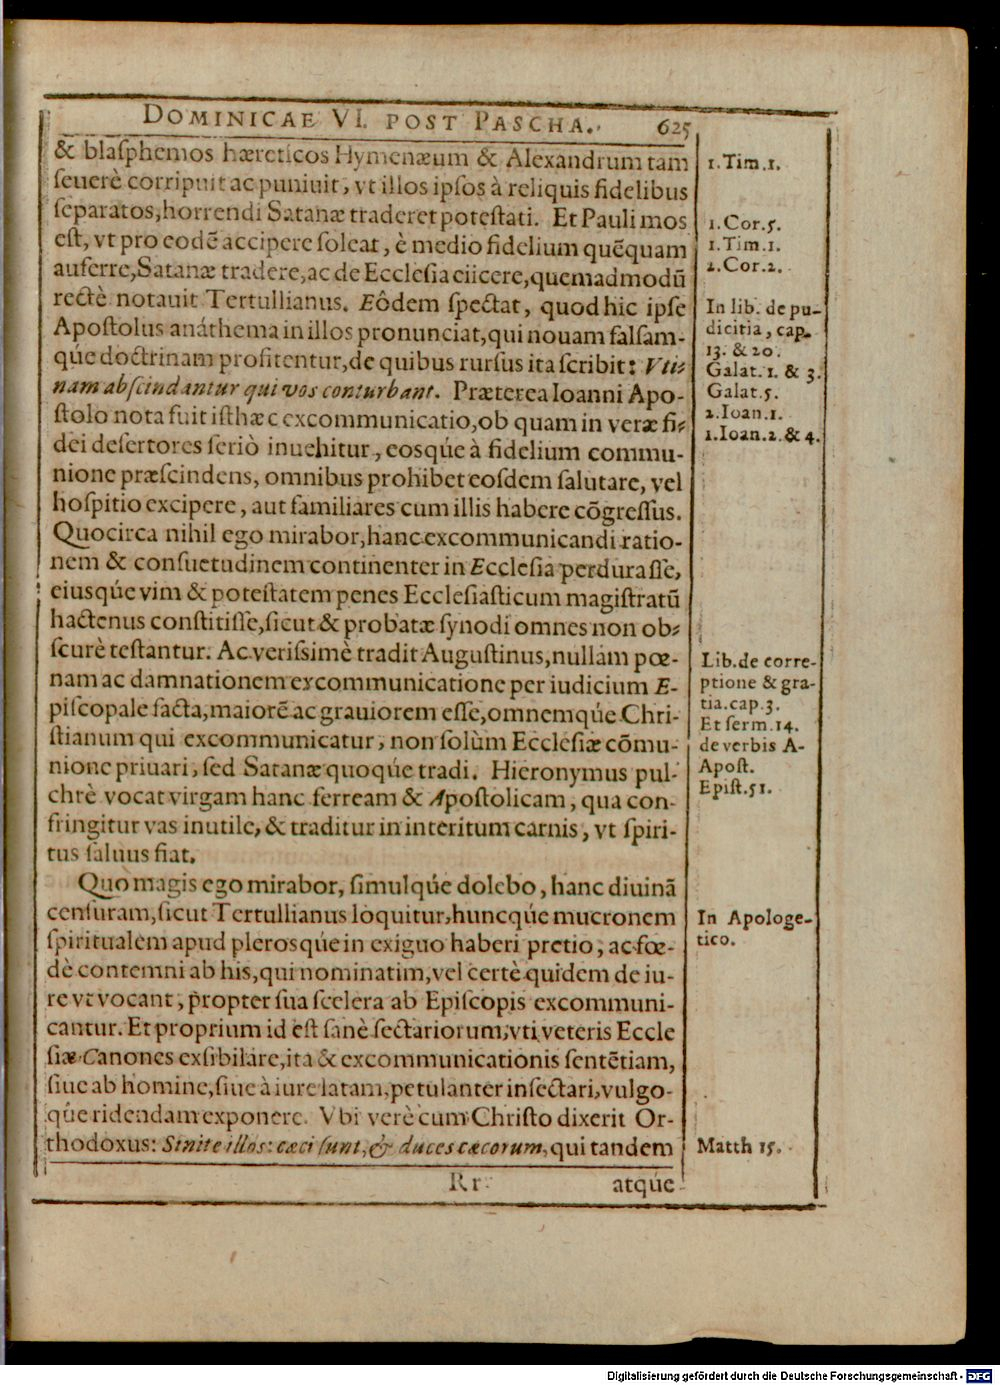 DOMINICAE VI. POST PASCHA. 625
& blaſphemos hæreticos Hymenæum & Alexandrum tam
ſeuerè corripuit ac puniuit, vt illos ipſos à reliquis fidelibus
ſeparatos, horrendi Satanæ traderet poteſtati. Et Pauli mos
eſt, vt pro eodē accipere ſoleat, è medio fidelium quēquam
auferre, Satanæ tradere, ac de Eccleſia eiicere, quemadmodū
rectè notauit Tertullianus. Eôdem ſpectat, quod hic ipſe
Apoſtolus anáthema in illos pronunciat, qui nouam falſam-
qúe doctrinam profitentur, de quibus rurſus ita ſcribit: Vti-
nam abſcindantur qui vos conturbant. Præterea Ioanni Apo-
ſtolo nota fuit iſthæc excommunicatio, ob quam in veræ fi-
dei deſertores ſeriò inuehitur, eosqúe à fidelium commu-
nione præſcindens, omnibus prohibet eoſdem ſalutare, vel
hoſpitio excipere, aut familiares cum illis habere cōgreſſus.
Quocirca nihil ego mirabor, hanc excommunicandi ratio-
nem & conſuetudinem continenter in Eccleſia perduraſſe,
eiusqúe vim & poteſtatem penes Eccleſiaſticum magiſtratū
hactenus conſtitiſſe, ſicut & probatæ ſynodi omnes non ob-
ſcurè teſtantur. Ac veriſsimè tradit Auguſtinus, nullam pœ-
nam ac damnationem excommunicatione per iudicium E-
piſcopale facta, maiorē ac grauiorem eſſe, omnemqúe Chri-
ſtianum qui excommunicatur, non ſolùm Eccleſiæ cōmu-
nione priuari, ſed Satanæ quoqúe tradi. Hieronymus pul-
chrè vocat virgam hanc ferream & Apoſtolicam, qua con-
fringitur vas inutile, & traditur in interitum carnis, vt ſpiri-
tus ſaluus fiat.
Quò magis ego mirabor, ſimulqúe dolebo, hanc diuinā
cenſuram, ſicut Tertullianus loquitur, huncqúe mucronem
ſpiritualem apud plerosqúe in exiguo haberi pretio, ac fœ-
dè contemni ab his, qui nominatim, vel certè quidem de iu-
re vt vocant, propter ſua ſcelera ab Epiſcopis excommuni-
cantur. Et proprium id eſt ſanè ſectariorum, vti veteris Eccle
ſiæ Canones exſibilare, ita & excommunicationis ſentētiam,
ſiue ab homine, ſiue à iure latam, petulanter inſectari, vulgo-
qúe ridendam exponere. Vbi verè cum Chriſto dixerit Or-
thodoxus: Sinite illos: cæci ſunt, & duces cæcorum, qui tandem
Rr atqúe
1. Tim. 1.
1. Cor. 5.
1. Tim. 1.
2. Cor. 2.
In lib. de pu-
dicitia, cap.
13. & 20.
Galat. 1. & 3.
Galat. 5.
2. Ioan. 1.
1. Ioan. 2. & 4.
Lib. de corre-
ptione & gra-
tia. cap. 3.
Et ſerm. 14.
de verbis A-
Apoſt.
Epiſt. 51.
In Apologe-
tico.
Matth 15.
Digitalisierung gefördert durch die Deutsche Forschungsgemeinschaft - DFG